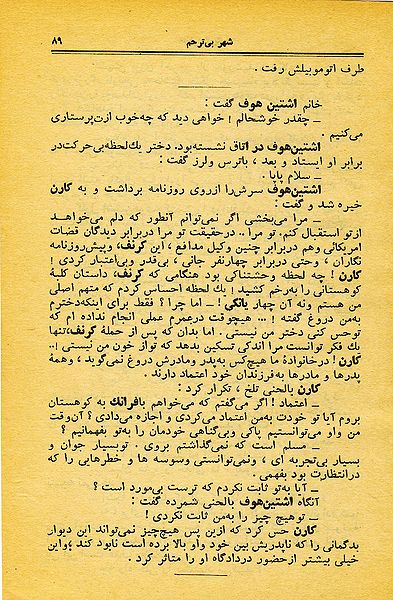 شهر بی‌ترحم ۸۹
طرف اتوموبیلش رفت .
خانم اشتین هوف گفت :
ـ چقدر خوشحالم ! خواهی دید که چه‌خوب ازت‌پرستاری
می‌کنیم .
اشتین‌هوف در اتاق نشسته‌بود. دختر یك‌لحظه‌بی‌حرکت‌در
برابر او ایستاد و بعد ، باترس ولرز گفت :
ـ سلام پاپا .
اشتین‌هوف سرش‌را ازروی روزنامه برداشت و به کارن
خیره شد و گفت :
ـ مرا می‌بخشی اگر نمی‌توانم آنطور که دلم می‌خواهد
ازتو استقبال کنم. تو مرا .. درحقیقت تو مرا دربرابر دیدگان قضات
امریکائی وهم دربرابر چنین وکیل مدافع ، این کرنف، وپیش‌روزنامه
نگاران ، وحتی دربرابر چهارنفر جانی ، بی‌قدر وبی‌اعتبار کردی !
کارن ! چه لحظه وحشتناکی بود هنگامی که کرنف، داستان کلبهٔ
کوهستانی را به‌رخم کشید ! یك لحظه احساس کردم که متهم اصلی
من هستم ونه آن چهار یانکی! ـ اما چرا ؟ فقط برای اینکه‌دخترم
به‌من دروغ گفته ! .. هیچوقت درعمرم عملی انجام نداده ام که
توحس کنی دختر من نیستی . اما بدان که پس از حملهٔ کرنف،تنها
یك فکر توانست مرا اندکی تسکین بدهد که تواز خون من نیستی !..
کارن ! درخانوادهٔ ما هیچ‌کس به‌پدر ومادرش دروغ نمی‌گوید ، وهمهٔ
پدرها و مادرها به‌فرزندان خود اعتماد دارند .
کارن بالحنی تلخ ، تکرار کرد :
ـ اعتماد ! اگر می‌گفتم که می‌خواهم بافرانك به کوهستان
بروم آیا تو خودت به‌من اعتماد می‌کردی و اجازه می‌دادی ؟ آن‌وقت
من واو می‌توانستیم پاکی وبی‌گناهی خودمان را به‌تو بفهمانیم ؟
ـ مسلم است که نمی‌گذاشتم بروی . توبسیار جوان و
بسیار بی‌تجربه ای ، ونمی‌توانستی وسوسه ها و خطرهایی را که
درانتظارت بود بفهمی .
ـ آیا به‌تو ثابت نکردم که ترست بی‌مورد است ؟
آنگاه اشتین‌هوف بالحنی شمرده گفت :
ـ توهیچ چیز را به‌من ثابت نکردی !
کارن حس کرد که ازین پس هیچ‌چیز نمی‌تواند این دیوار
بدگمانی را که ناپدریش بین خود واو بالا برده است نابود کند ؛واین
خیلی بیشتر ازحضور دردادگاه او را متاثر کرد .